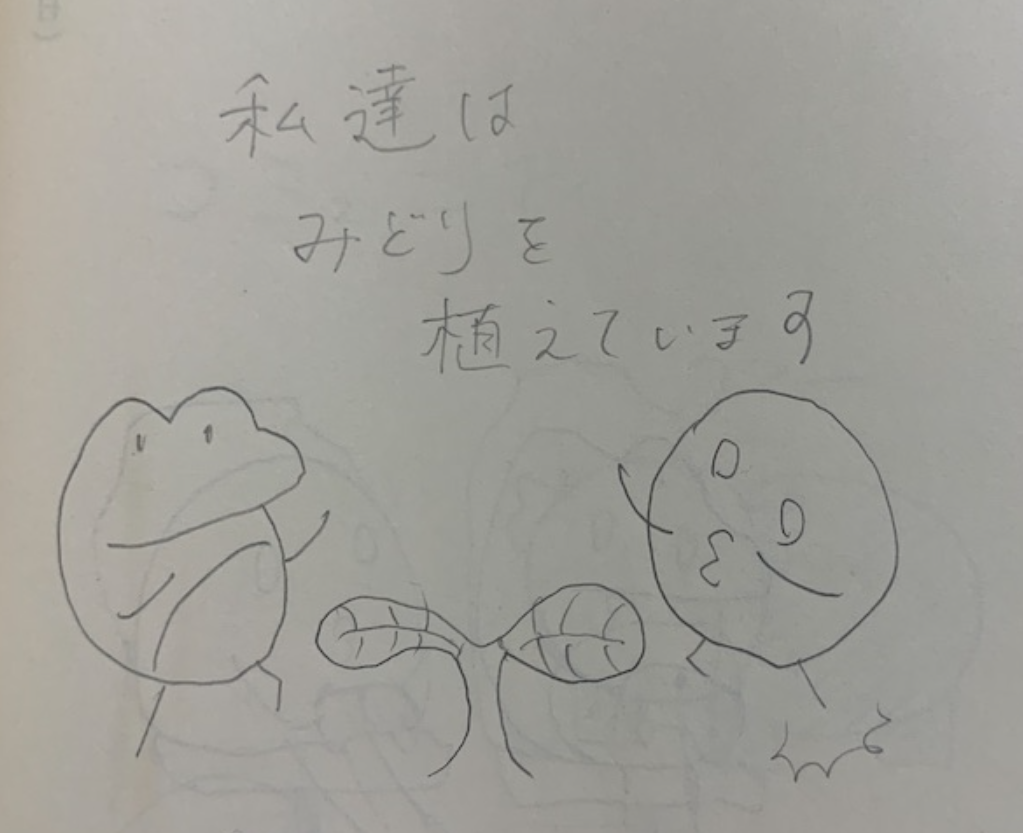 私達は
みどりを
植えています